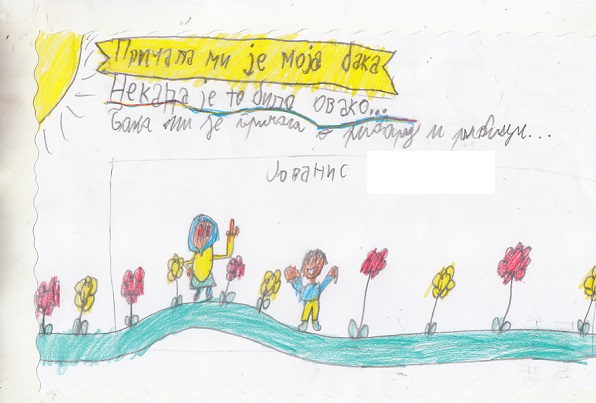 Причала ми је моја бака
Некада је то било овако...
Бака ми је причала о и
Јованис